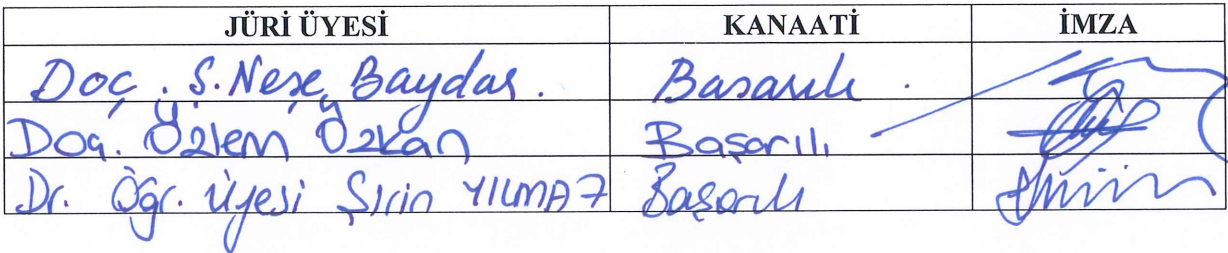 JÜRİ ÜYESİ KANAATİ İMZA
Doç. S. Neşe Baydar. Başarılı.
Doç. Özlem Özkan Başarılı
Dr. Öğr. Üyesi Şirin YILMAZ Başarılı